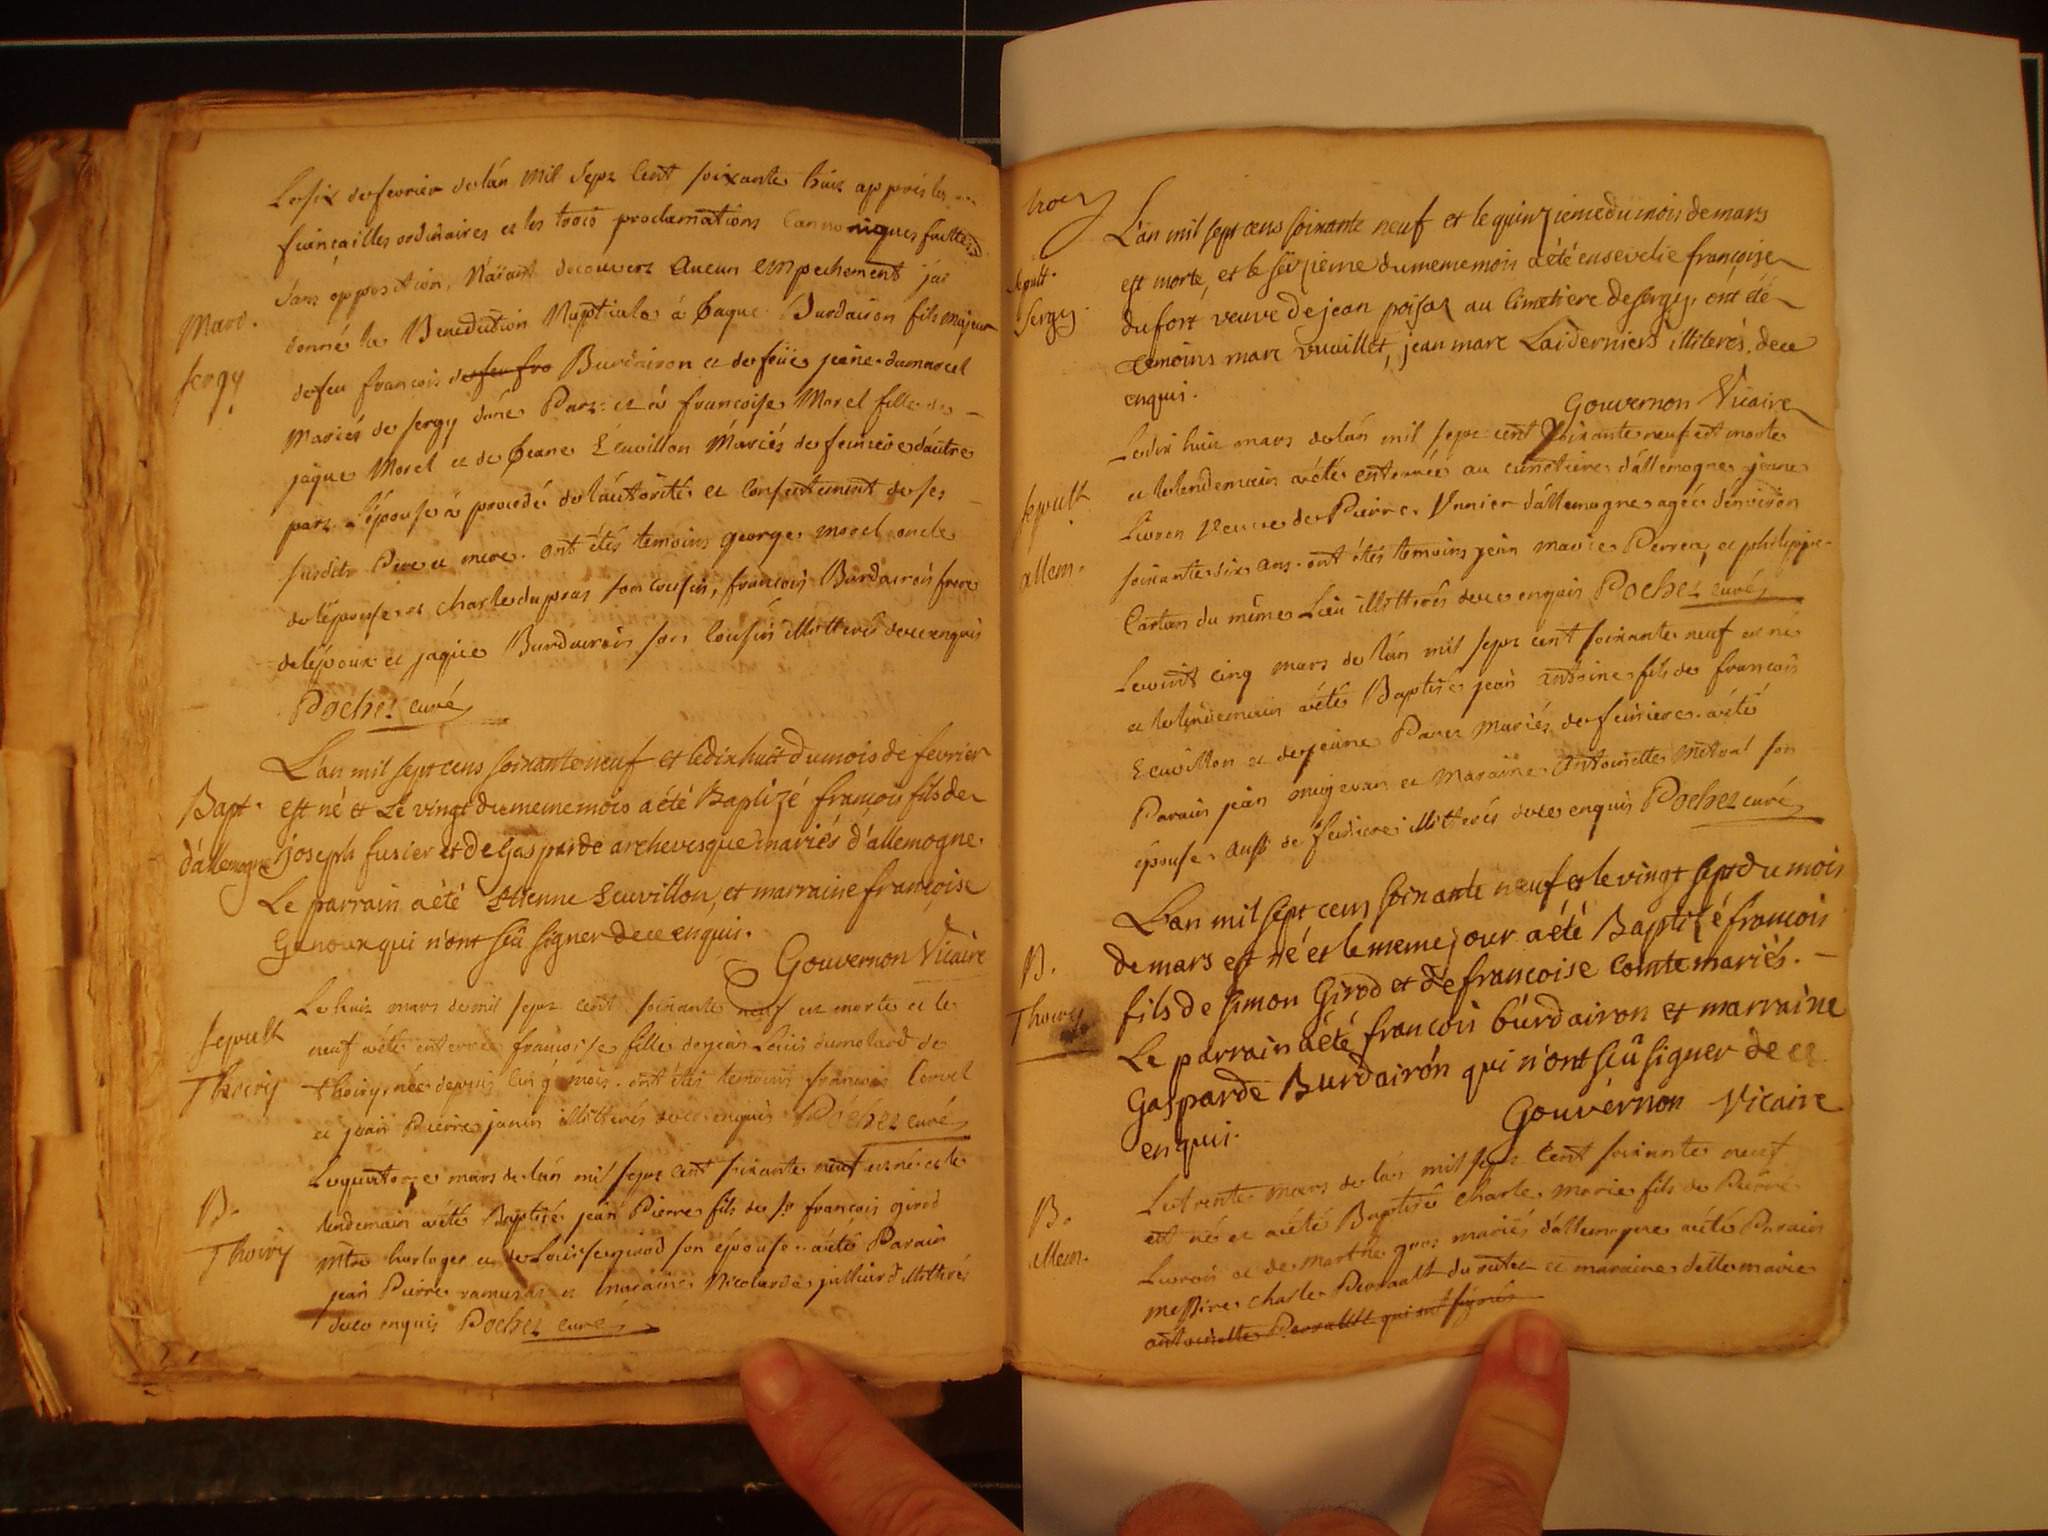 Le six de fevrier de l'án mil sept Cent soixante huit apprés les
fiançailles ordinaires et les trois proclamations Cannoniques faittes
sans opposition, N'aïant decouvert Aucun empechement j'ai
Mari.
donné la Benediction Nuptiale à Jaque Burdairon fils majeur
sergy
de feu françois de feu fro Burdairon et de feüe jeane dumarcel
Mariés de sergy d'une Part et à françoise Morel fille de
jaque Morel et de Jeane Ecuvillon Mariés de feniere d'autre
part L'épouse à procedé de l'autorité et Consentement de ses
susdits Pere et mere. ont étés temoins george morel oncle
de l'épouse et Charle dupras son cousin, françois Burdairon frere
de l'époux et jaque Burdairon son Cousin illitterés de ce enquis
Pochet curé
L'an mil sept cens soixante neuf et le dix huit du mois de fevrier
Bapt.
est né et Le vingt du meme mois a été Baptizé françois fils de
d'allemogne
joseph fusier et de Gasparde archevesque mariés d'allemogne.
Le parrain a été Etienne Ecuvillon, et marraine françoise
Genoux qui n'ont sçû signer de ce enquis.
Gouvernon Vicaire
Le huit mars de mil sept cent soixante neuf est morte et le
sepult
neuf a été enterrée françoise fille de jean Loüis dumolard de
Thoiry
Thoiry, née depuis cinq mois. ont étés temoins françois
et jean Pierre janin illitterés de ce enquis Pochet curé
Le quatorze mars de l'án mil sept cent soixante neuf est né et le
B.
lendemain a été Baptisé jean Pierre fils de sr françois girod
Thoiry
mtre horloger et de Louise girod son épouse. a été Parain
jean Pierre ramusat et maraine Nicolarde julliard illitterés
de ce enquis Pochet curé
L'an mil sept cens soixante neuf et le quinzieme du mois de mars
sepult.
est morte, et le seizieme du meme mois a été ensevelie françoise
sergy.
dufort veuve de jean poisat au Cimetiere de sergy, ont été
temoins marc vuaillet, jean marc Laiderniers illiterés. de ce
enquis.
Gouvernon Vicaire
Le dix huit mars de l'án mil sept cent soixante neuf est morte
et le lendemain a été enterrée au cimetiere d'allemogne jeane
sepult
Livron Veuve de Pierre d'allemogne agée d'environ
allem.
soixante six ans. ont étés temoins jean marie Perrea, et philippe
Carteri du même Lieu illitterés de ce enquis Pochet curé
Le vint cinq mars de l'án mil sept cent soixante neuf est né
et le lendemain a été Baptisé jean antoine fils de françois
Ecuvillon et de jeane Paret mariés de feniere. a été
Parain jean mugevan et Maraine Antoinette son
épouse aussi de feniere illitterés de ce enquis Pochet curé
L'an mil sept cens soixante neuf et le vingt sept du mois
B.
de mars est né et le meme jour a été Baptizé françois
Thoiry
fils de simon Girod et de françoise Comte mariés.
Le parrain a été françois burdairon et marraine
Gasparde Burdairon qui n'ont sçû signer de ce
enquis.
Gouvernon Vicaire
Le trente mars de l'án mil sept Cent soixante neuf
B.
est né et a été Baptisé Charle marie fils de Pierre
allem.
Livron et de marthe gros mariés d'allemogne a été Parain
messire Charle Perrault de rutet et maraine delle marie
antoinette Perrault qui ont signés